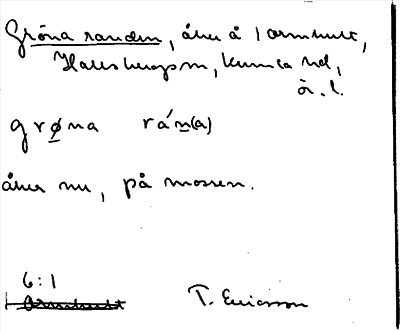 Gröna randen, åker å 1 ormhult,
Hallsbergs sn, Kumla hd,
ö. l.
grøna rá́n(a)
åker nu, på mossen.
6:1
Ormhult
T. Ericsson